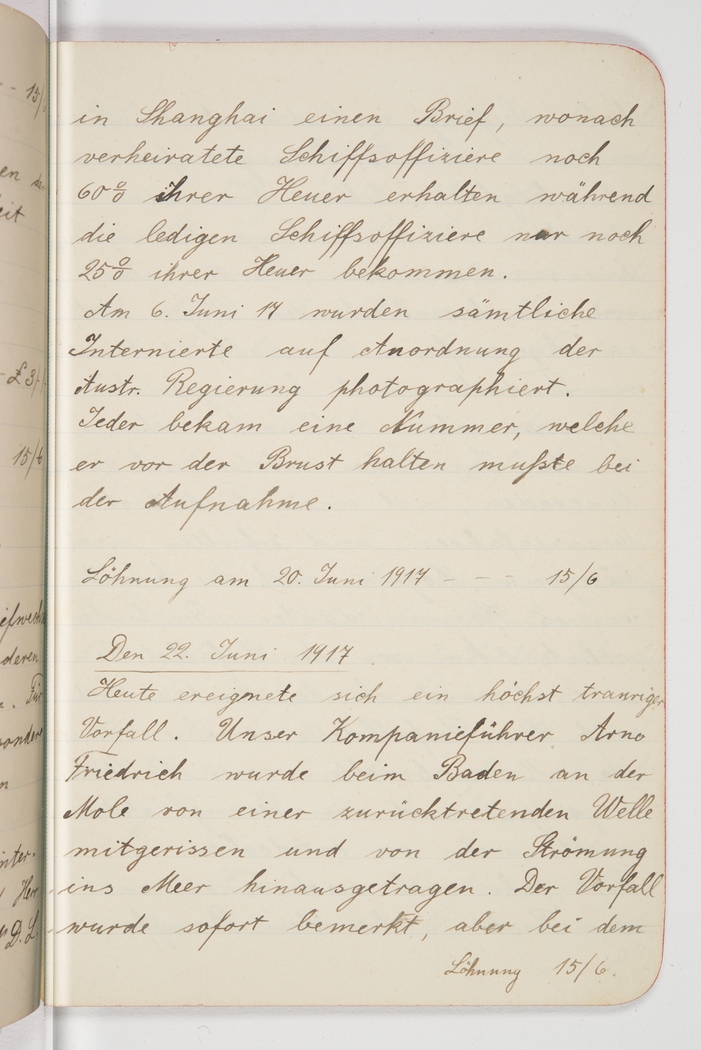 in Shanghai einen Brief, wonach
verheiratete Schiffsoffiziere noch
60% ihrer Heuer erhalten während
die ledigen Schiffsoffiziere nur noch
25% ihrer Heuer bekommen.
Am 6. Juni 17 wurden sämtliche
Internierte auf Anordnung der
Austr. Regierung photographiert.
Jeder bekam eine Nummer, welche
er vor der Brust halten mußte bei
der Aufnahme.
Löhnung am 20. Juni 1917 - - - 15/6
Den 22. Juni 1917
Heute ereignete sich ein höchst trauriger
Vorfall. Unser Kompanieführer Arno
Friedrich wurde beim Baden an der
Mole von einer zurücktretenden Welle
mitgerissen und von der Strömung
ins Meer hinausgetragen. Der Vorfall
wurde sofort bemerkt, aber bei dem
Löhnung 15/6.
15/
£3/
15/6
deren